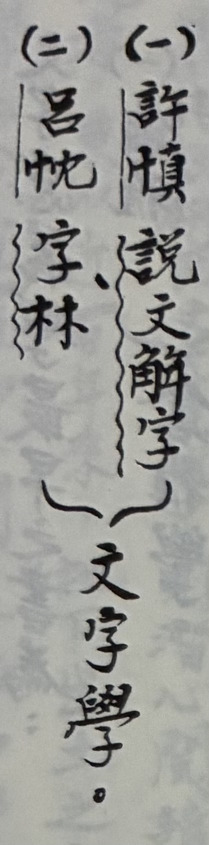 (一)許慎 說文解字、
(二)呂忱 字林
文字學。